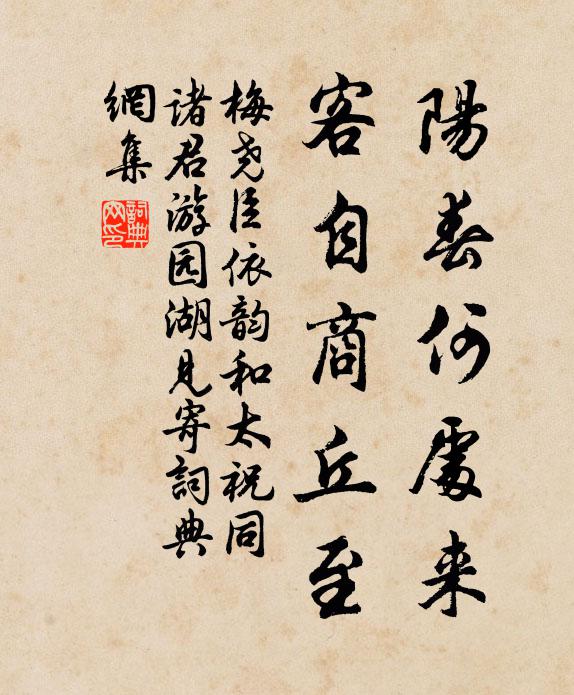 陽春何處来
客自商丘至
梅尧臣依韵和太祝同
诸君游园湖見寄詞典
網集
詞典網印